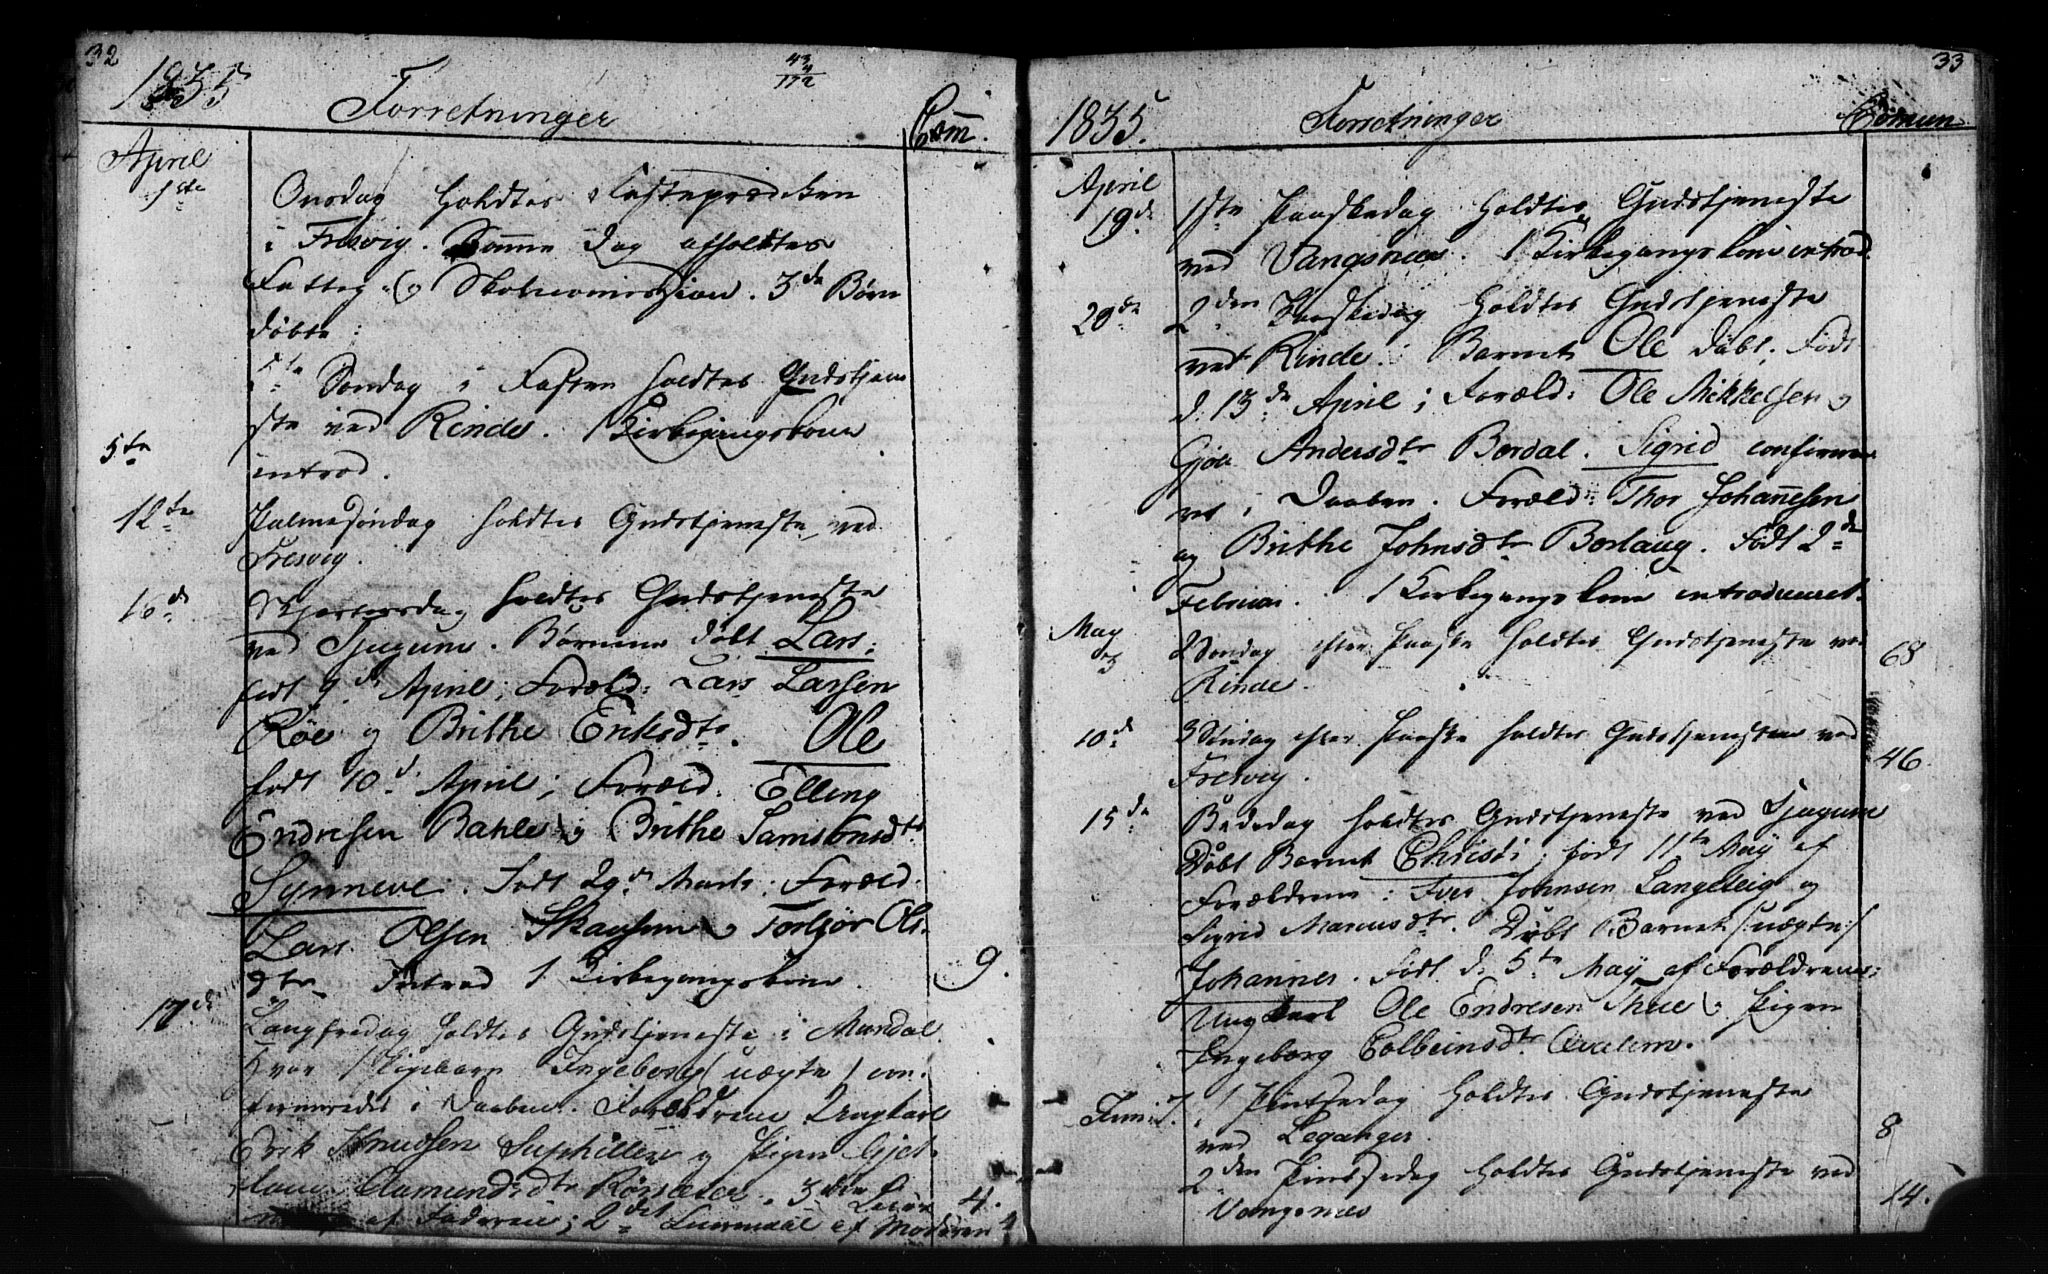 32
1835
Forretninger
43
4
172
Com̄.
April
1ste
Onsdag holdtes Fasteprædiken
i Fresvig. Samme Dag afholdtes
Fattig og Skolecommission. 3de Børn
døbte
5te Søndag i Fasten holdtes Gudstjene
5te
ste ved Rinde. 1 Kirkegangskone
introd.
12te
Palmesøndag holdtes Gudstjeneste ved
Fresvig.
16de
Skjertorsdag holdtes Gudstjeneste
ved Tjugum. Børnene døbt Lars;
født 9de April; Foræld: Lars Larsen
Røe og Brithe Eriksdtr. Ole
født 10d April; Foræld. Elling
Endresen Bahle og Brithe Samsonsdtr
Synneve. Født 29de Marts; Foræld.
Lars Olsen og Torbjør Ols-
dtr Introd 1 Kirkegangskone.
9.
17de
Langfredag holdtes Gudstjeneste i Mundal
hvor 1 Pigebarn Ingeborg (uægte) con-
firmeredes i Daaben. Forældrene Ungkarl
Erik Knudsen og Pigen Gjet-
Aamundsdtr 3die
4.
af Faderen; 2det af Moderen
33
1835.
Forretninger
Commun
April
19de
1ste Paaskedag holdtes Gudstjeneste
ved Vangsnæs. 1 Kirkegangskone introd.
20de
2den Paaskedag holdtes Gudstjeneste
ved Rinde. Barnet Ole døbt. Født
d. 13de April; Foræld: Ole Mikkelsen og
Gjøe Andersdtr Bordal. Sigrid confirme-
ret i Daaben. Foræld: Thor Johannesen
og Brithe Johnsdtr Borlaug. Født 2de
Februar. 1 Kirkegangskone introduceret.
May
3
2 Søndag efter Paaske holdtes Gudstjeneste ved
68
Rinde.
10de
3 Søndag efter Paaske holdtes Gudstjenesten ved
46
Fresvig.
15de
Bededag holdtes Gudstjeneste ved Tjugum
Døbt Barnet Christi; født 11te May af
Forældrene: Iver Johnsen Langeteig og
Sigrid Marcusdtr. Døbt Barnet /:uægte:/
Johannes. Født d. 5te May af Forældrene:
Ungkarl Ole Endresen Thue og Pigen
Ingeborg Colbeinsdtr
Juni 7.
1 Pintsedag holdtes Gudstjeneste
ved Leganger.
8
2den Pindsedag holdtes Gudstjeneste ved
14.
Vangsnæs